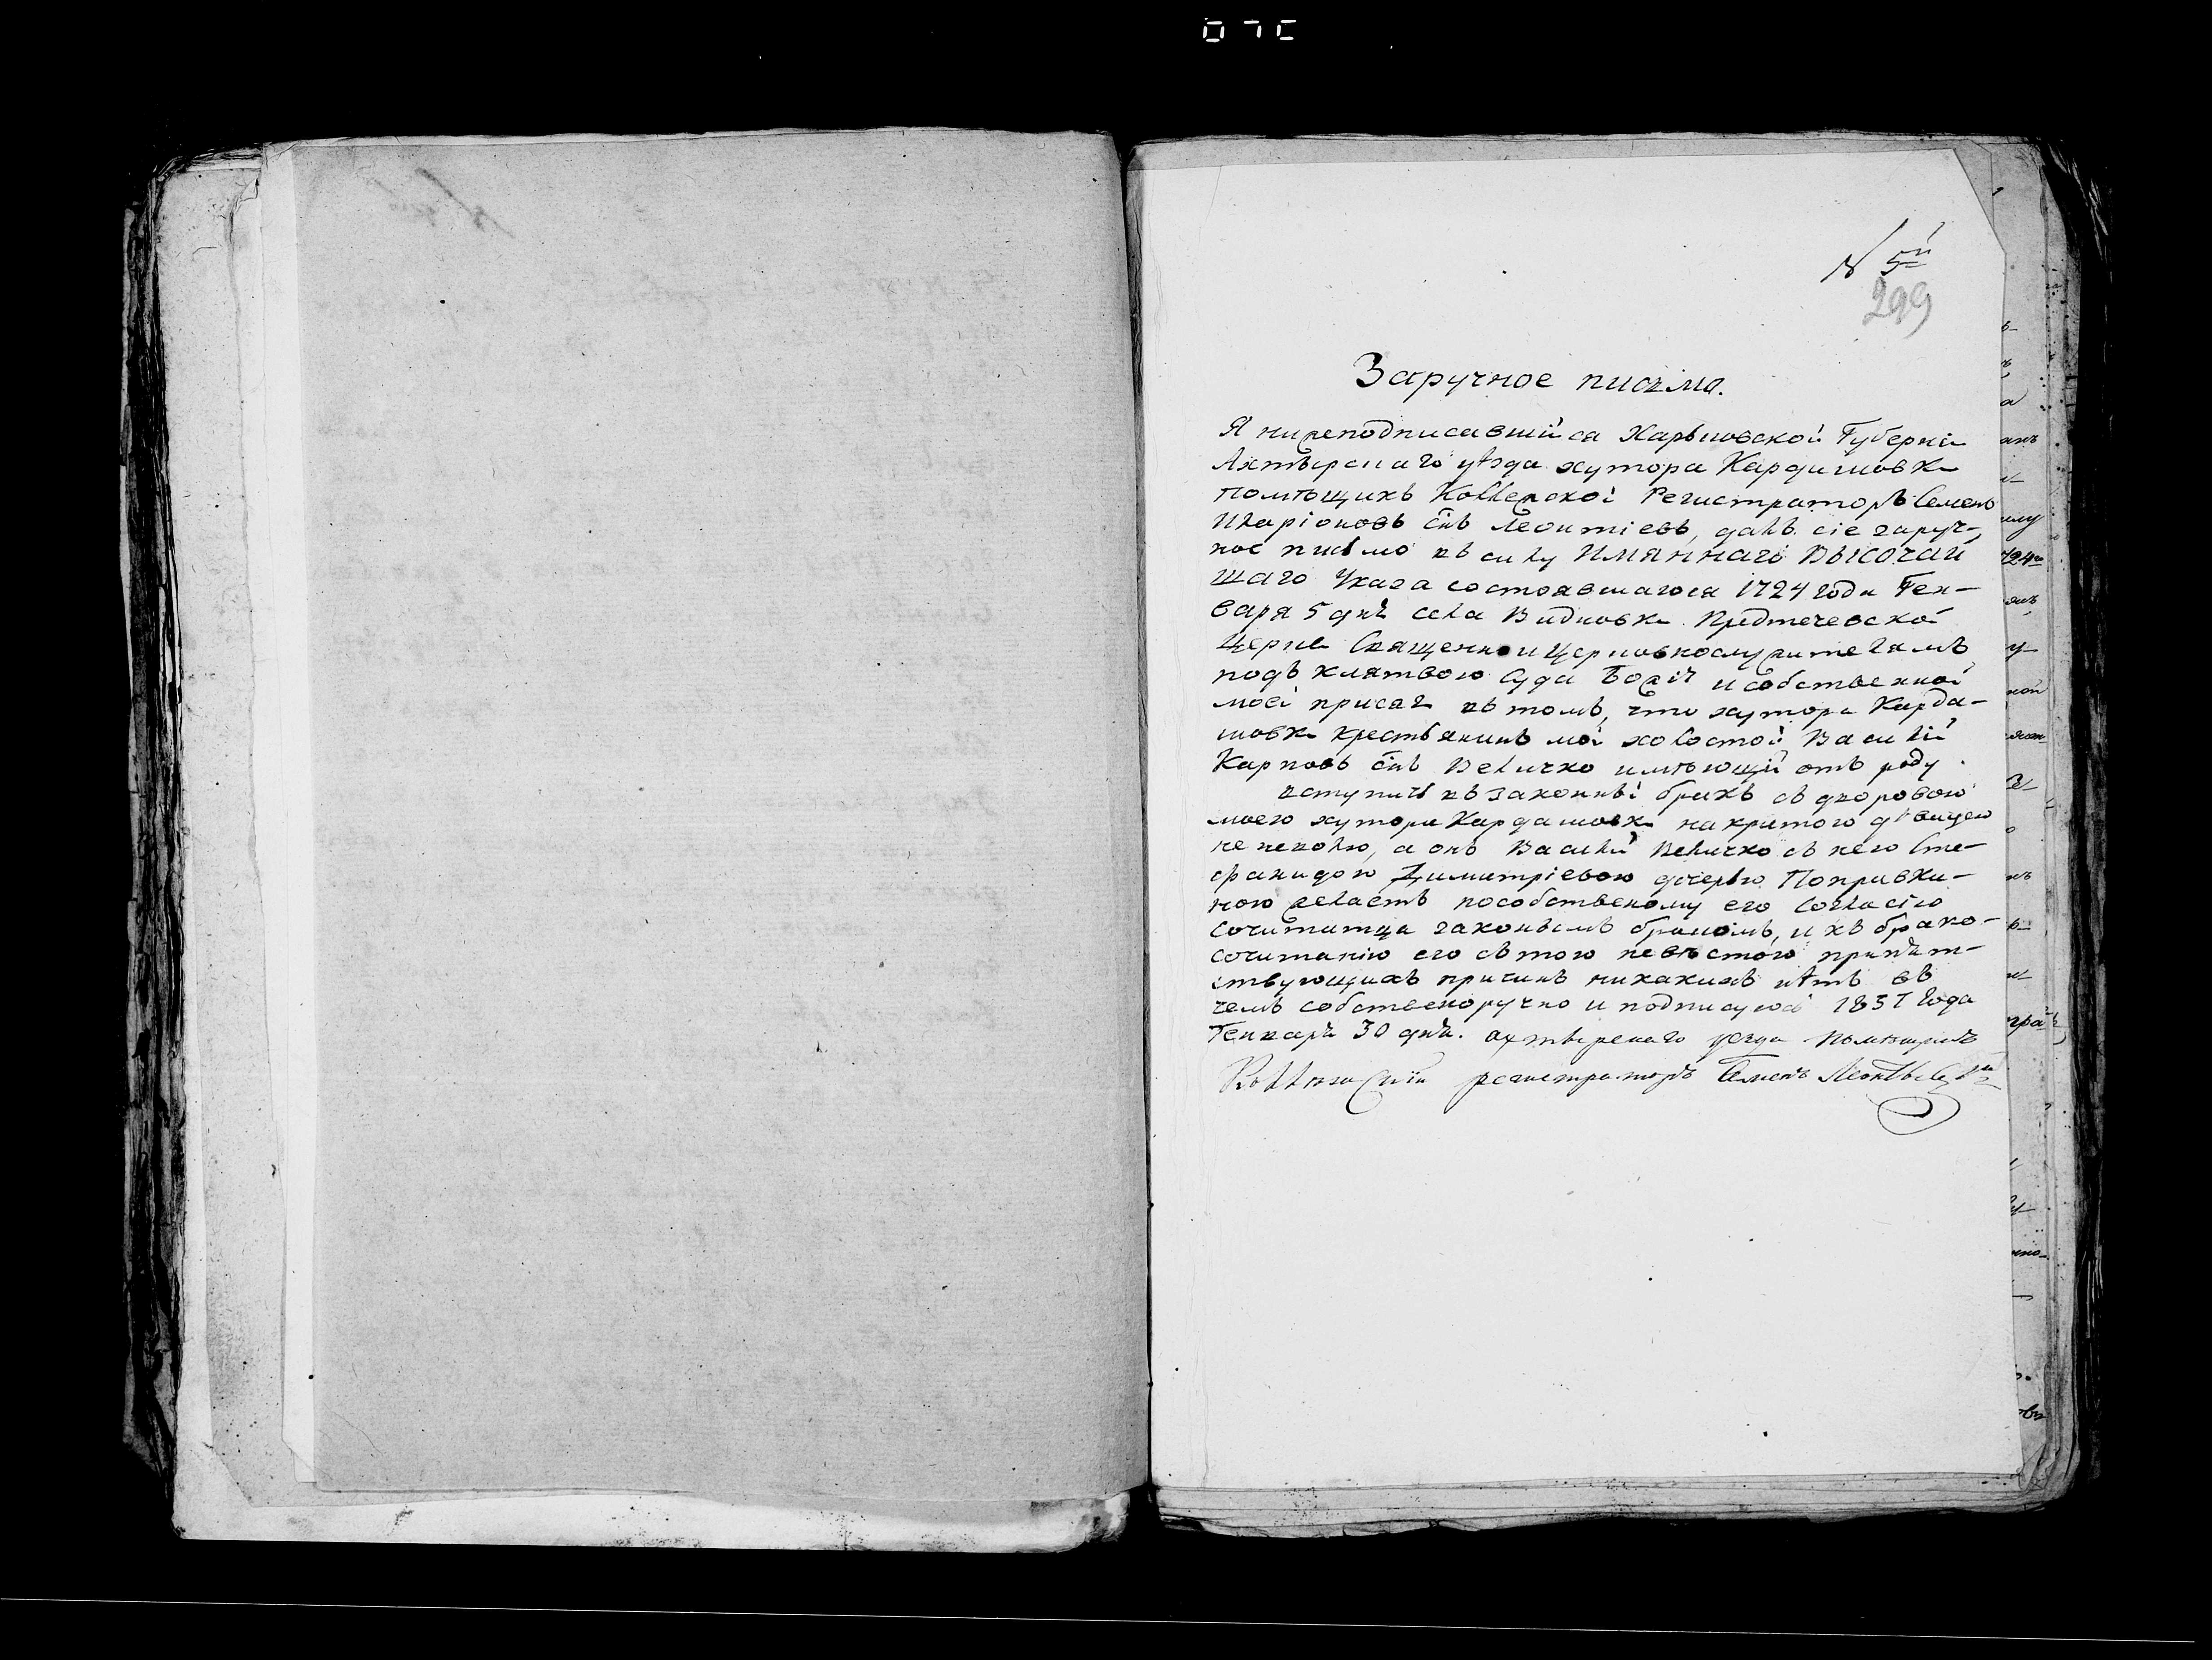 N 5й
299
Заручное писмо.
Я нижеподписавшійся Харьковской Губерніи
Ахтырскаго уѣзда хутора Кардашовки
помѣщикъ Коллежской Регистраторъ Семенъ
Иларіоновъ сн҃ъ Леонтіевъ, далъ сіе заруч-
ное письмо въ силу Имяннаго Высочай
шаго Указа состоявшагося 1724 года Ген-
варя 5 дня села Видновки Предтечевской
Церкви Священно и Церковнослужителямъ
подъ клятвою Суда Божія и собственной
моей присяги въ томъ, что хутора Карда-
шовки крестьянинъ мой холостой Василій
Карповъ сн҃ъ Величко имѣющій отъ роду
вступить въ законный бракъ съ дворовою
моего хутора Кардашовки накритого дѣвицею
не неволю, а онъ Василій Величко съ нею Сте-
фанидою Димитріевою дочерью Поправки-
ною желаетъ пособственому его согласію
сочитатца законымъ бракомъ, и къ брако-
сочитанію его съ тою невѣстою препят-
ствующихъ причинъ никакихъ нѣтъ въ
чемъ собственоручно и подписуюсь 1837 года
Генваря 30 дня. ахтырскаго уезда помѣщикъ
Коллежскій регистраторъ Семенъ Леонтьевъ